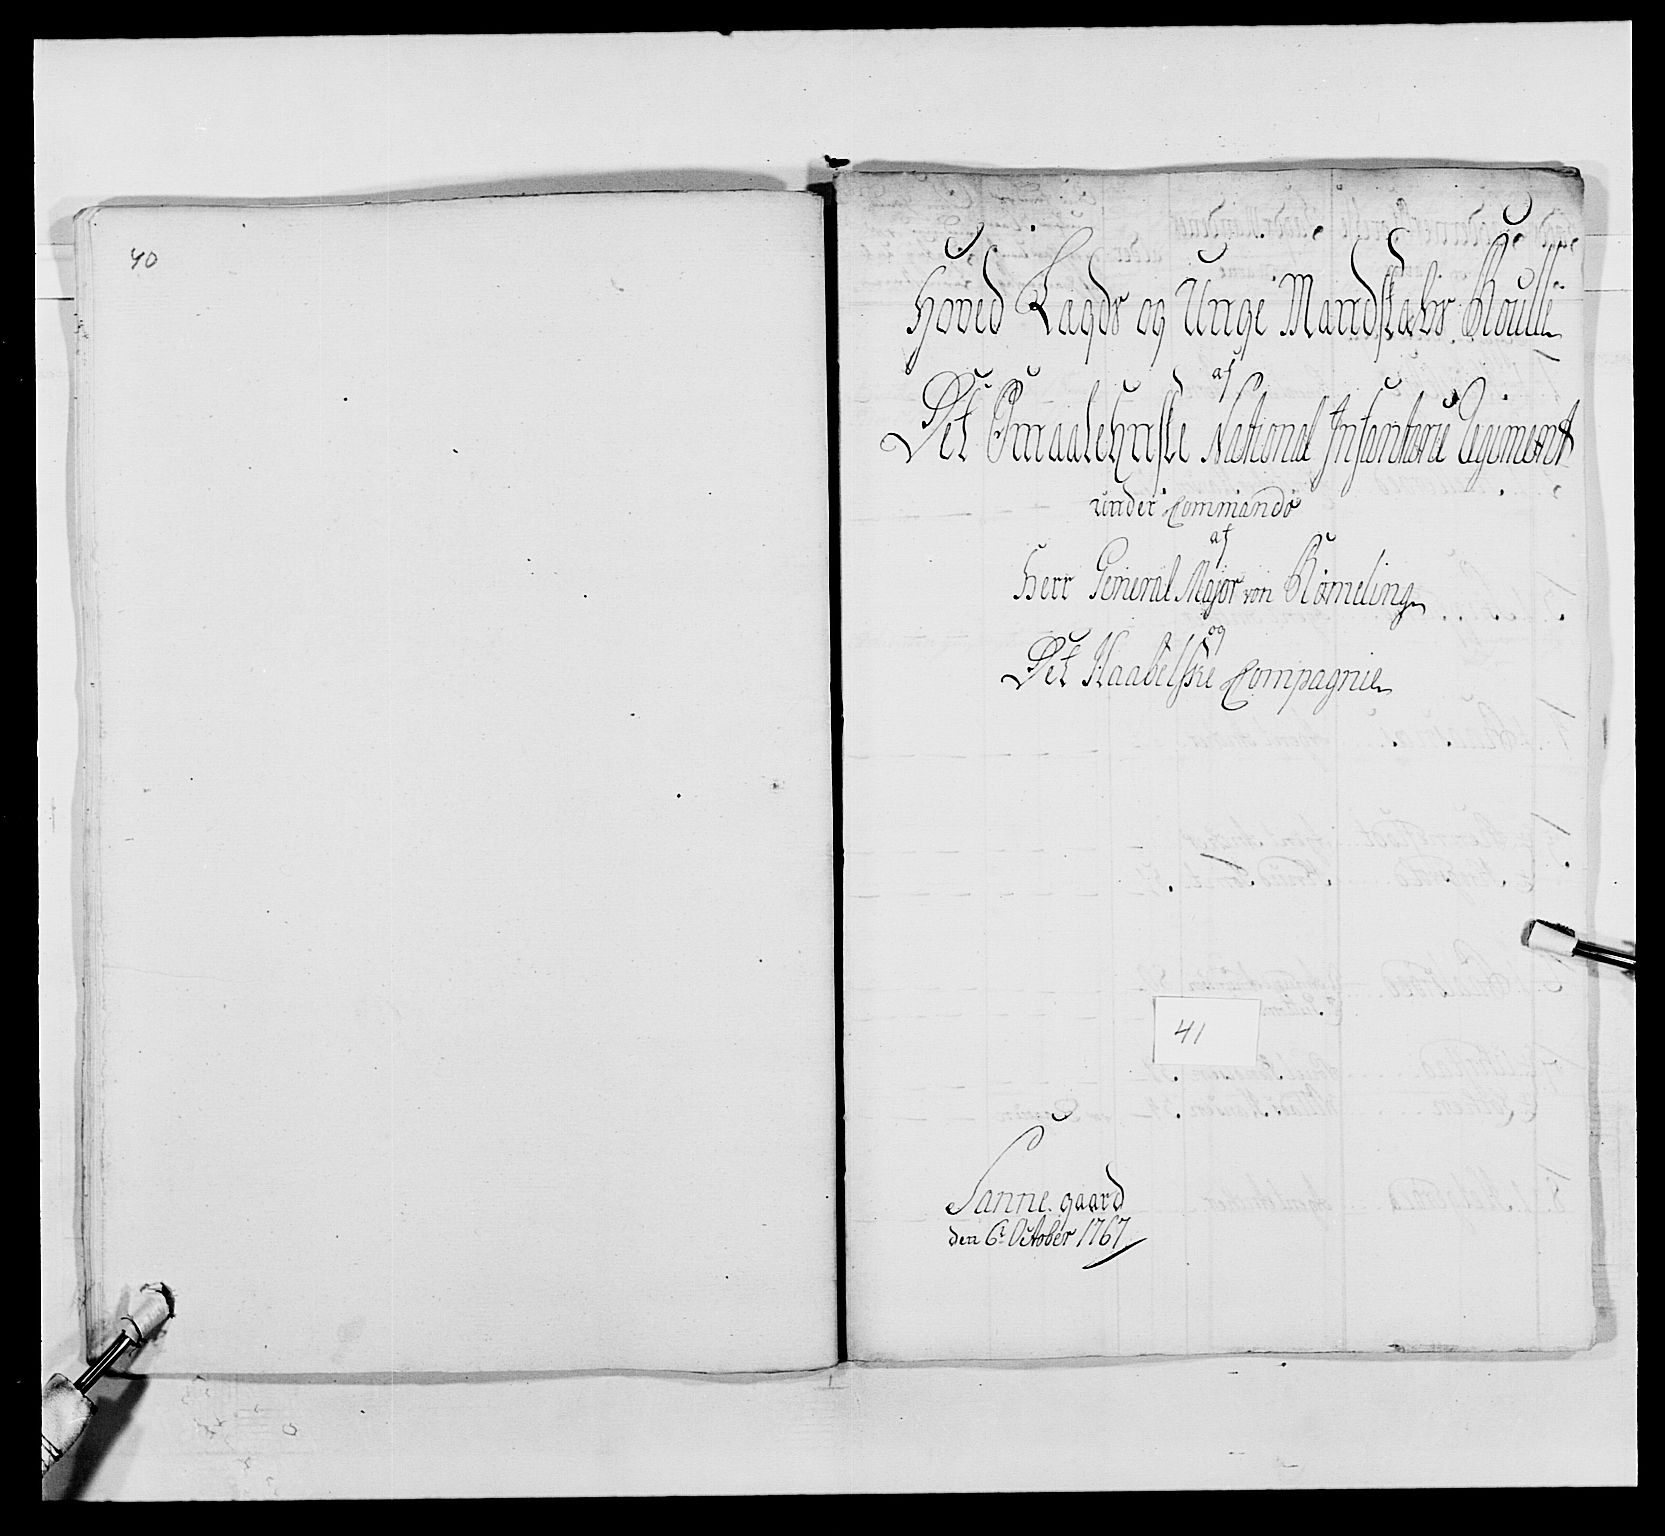 40
Hoved Lægds og Unge Mandskabs Roulle
af
Det Smaalehnske National Infanterie Regiment
under Commando
af
Herr General Major von Rømeling
og
Det Raabelske Compagnie
41
Sanne gaard
den 6t October 1767